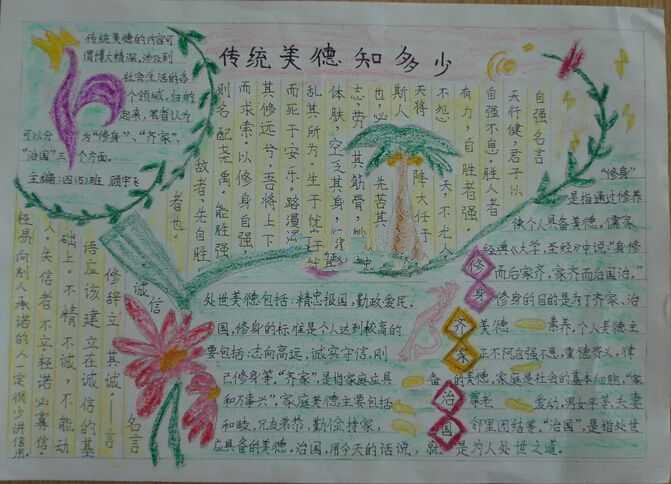 传统美德知多少
传统美德的内容可
谓博大精深，涉及到
社会生活的各
个领域，归纳
起来，笔者认为
可以分为“修身”、“齐家”、
“治国”三个方面。
主编：四（5）班
自强名言
天行健，君子以
自强不息。胜人者
有力，自胜者强。
不怨天，不尤人
天将降大任于
斯人
也，必先苦其
志，劳其筋骨，
体肤，空乏其身，
乱其所为。生于忧
而死于安乐。路漫漫
其修远兮，吾将上下
而求索。以修身自强，
则名配尧禹 能胜强
故者，先自胜
者也。
诚信
名言
修辞立其诚。
语应该建立在诚信的基
础上。不精不诚，不能动
人。失信者不立轻诺必寡信。
轻易向别人承诺的人一定很少讲信用
“修身”
是指通过修养
使个人具备美德。儒家
经典《大学，圣经》中说“身修
而后家齐，家齐而治国治，”
修身的目的是为了齐家、治
修身
齐家
治国
处世美德包括：精忠报国，勤政爱民，
国，修身的标准是个人达到较高的
美德素养，个人美德主
要包括：志向高远，诚实守信，刚
正不阿自强不息，重德贵义，律
己修身等。“齐家”，是指家庭应具
备的美德，家庭是社会的基本细胞，“家
和万事兴”，家庭美德主要包括
尊老爱幼，男女平等，夫妻
和睦，兄友弟恭，勤俭持家，
邻里团结等，“治国”，是指处世
应具备的美德。治国，用今天的话说，就是为人处世之道。